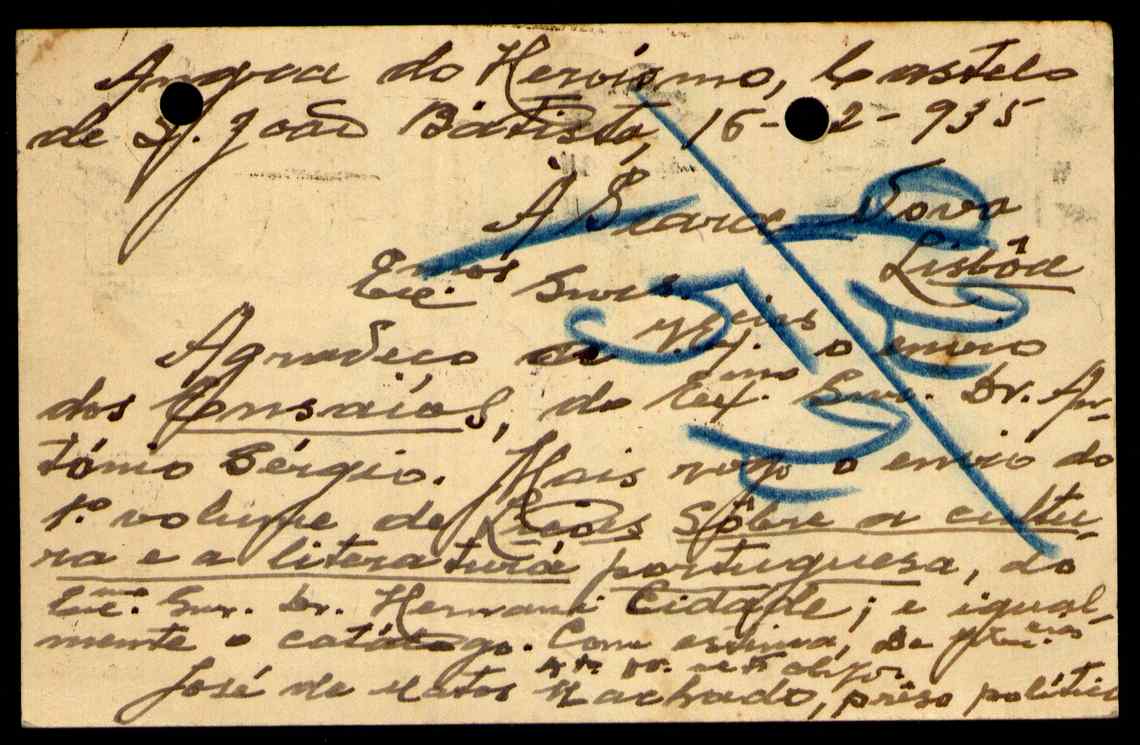 Angra do Heroismo, Castelo
de S. João Batista, 16-2-935
À Seara Nova
Lisbôa
Exc.mos Snres.
Agradeço a V. Ex.cias o envio
dos Ensaios, do Ex.mo Snr. Dr. An-
tónio Sérgio. Mais rogo o envio do
1.º volume de Lições Sôbre a cultu-
ra e a literatura portuguesa, do
Exc.mo Snr. Dr. Hernani Cidade; e igual-
mente o catálogo. Com estima, De V.
José de Matos Machado, prêso político